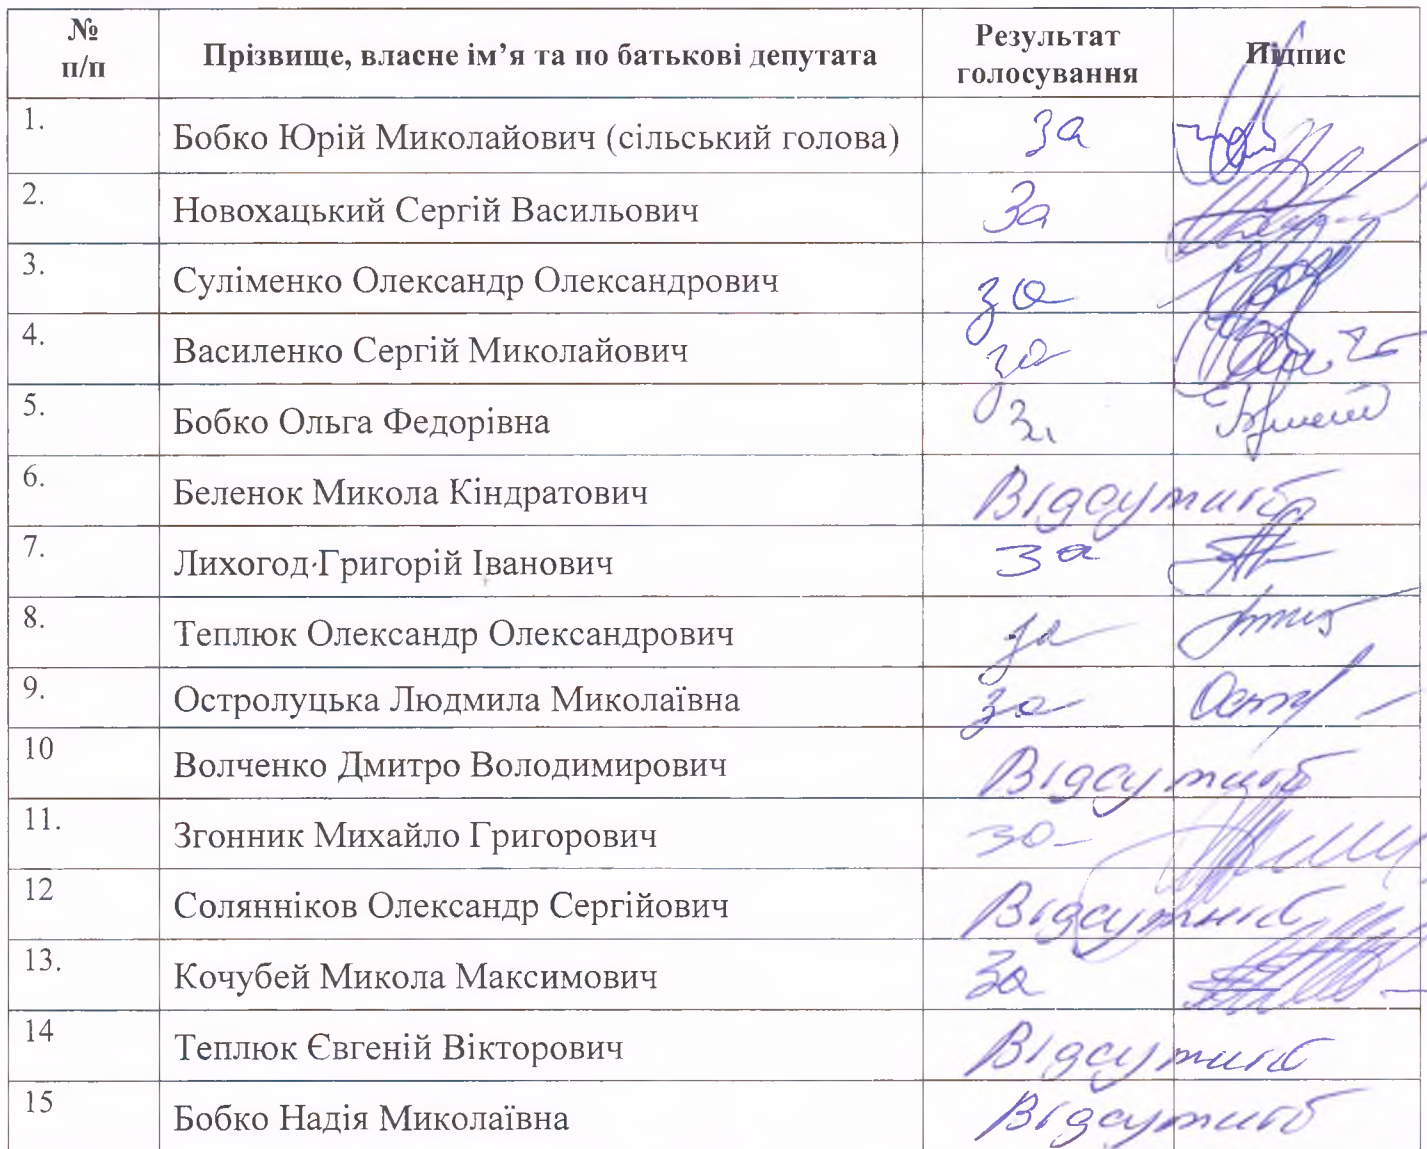 № п/п Прізвище, власне ім’я та по батькові депутата Результат голосування Підпис
1. Бобко Юрій Миколайович (сільський голова) За
2. Новохацький Сергій Васильович За
3. Суліменко Олександр Олександрович за
4. Василенко Сергій Миколайович за
5. Бобко Ольга Федорівна
6. Беленок Микола Кіндратович Відсутній
7. Лихогод Григорій Іванович За
8. Теплюк Олександр Олександрович за
9. Остролуцька Людмила Миколаївна за
10 Волченко Дмитро Володимирович Відсутній
11. Згонник Михайло Григорович за
12 Солянніков Олександр Сергійович Відсутній
13. Кочубей Микола Максимович За
14 Теплюк Євгеній Вікторович Відсутній
15 Бобко Надія Миколаївна